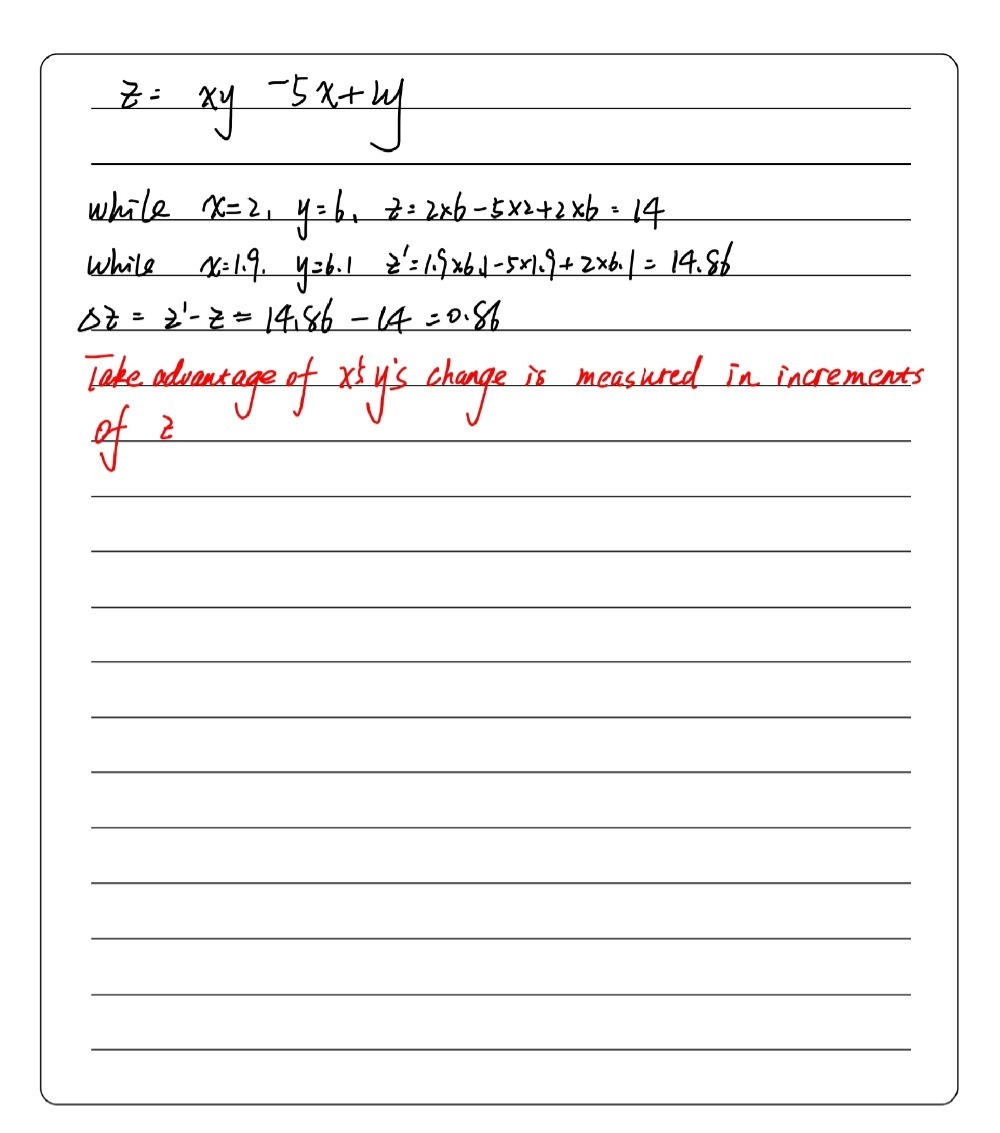 z = xy -5x+2y
while x=2, y=6, z=2×6-5×2+2×6=14
while x=1.9. y=6.1 z'=1.9×6.1-5×1.9+2×6.1=14.86
Δz = z'-z = 14.86 - 14 = 0.86
Take advantage of x's y's change is measured in increments
of z